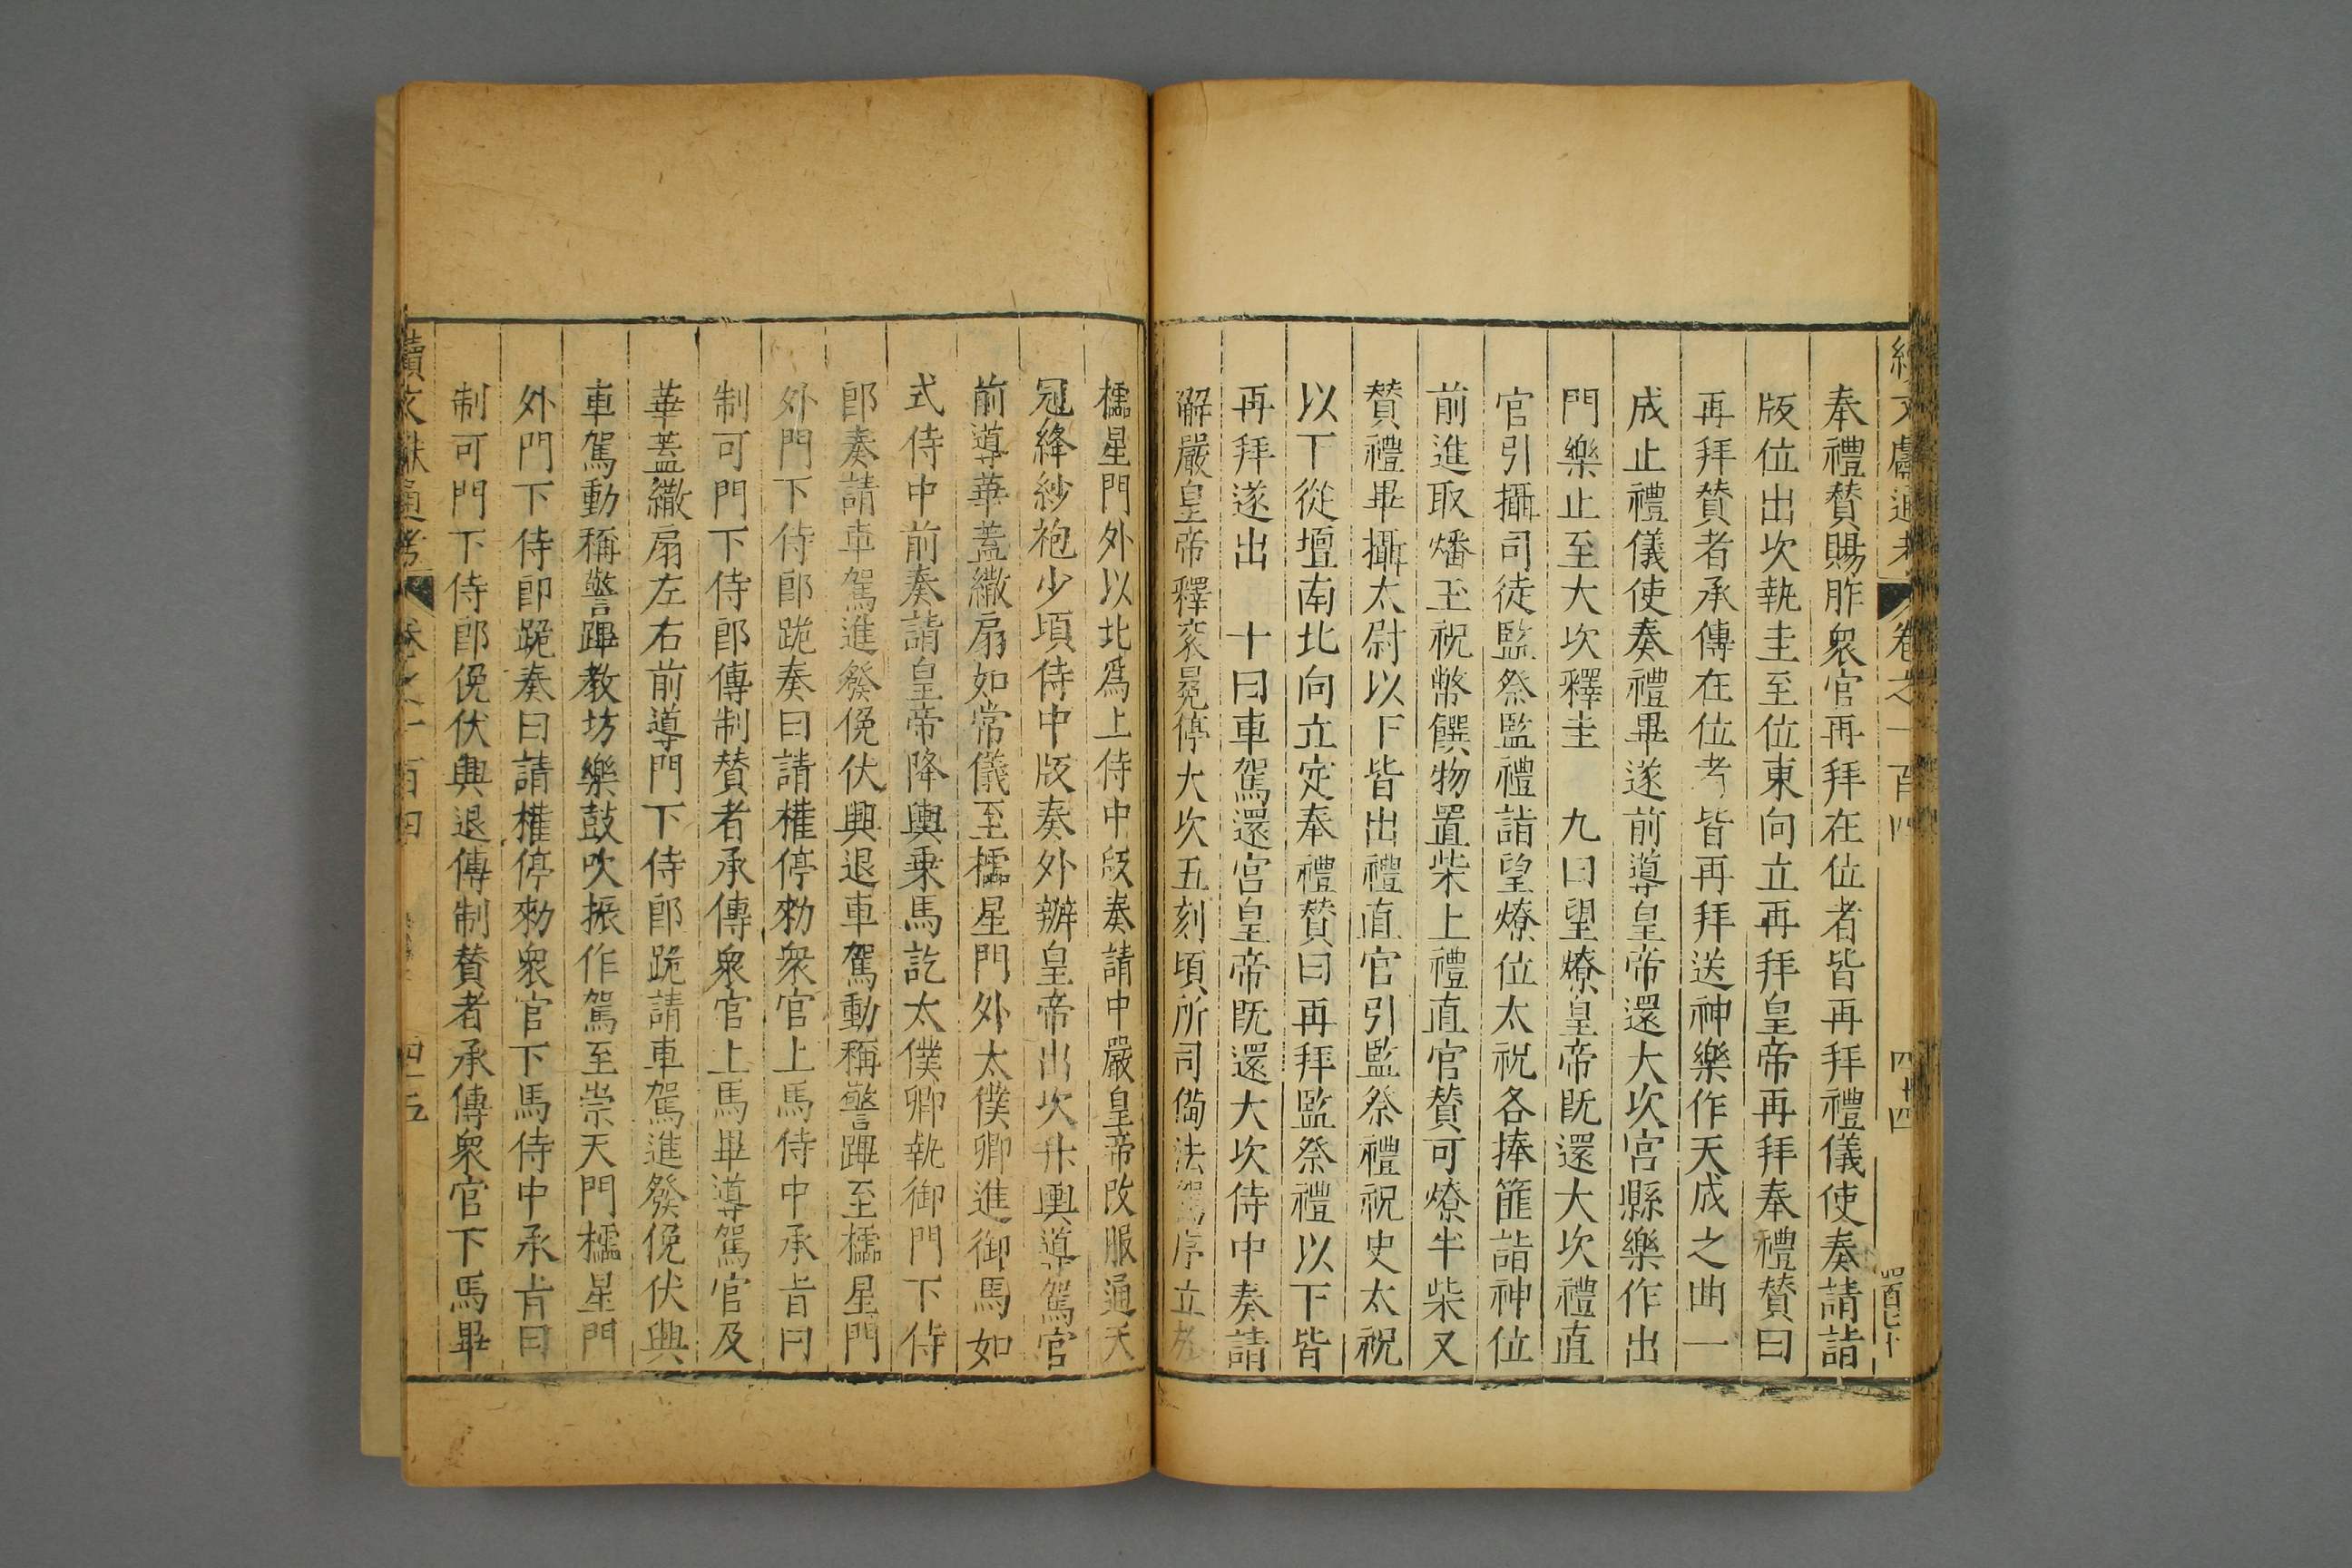 續文獻通考 卷之一百四 四十四
奉禮賛賜胙衆官再拜在位者皆再拜禮儀使奏請詣
版位出次執圭至位東向立再拜皇帝再拜奉禮賛曰
再拜賛者承傳在位者皆再拜送神樂作天成之曲一
成止禮儀使奏禮畢遂前導皇帝還大次宮縣樂作出
門樂止至大次釋圭 九曰望燎皇帝旣還大次禮直
官引攝司徒監祭監禮詣望燎位太祝各捧篚詣神位
前進取燔玉祝幣饌物置柴上禮直官賛可燎半柴又
賛禮畢攝太尉以下皆出禮直官引監祭禮祝史太祝
以下從壇南北向立定奉禮賛曰再拜監祭禮以下皆
再拜遂出 十曰車駕還宮皇帝旣還大次侍中奏請
解嚴皇帝釋衮冕停大次五刻頃所司備法駕序立於
櫺星門外以北爲上侍中版奏請中嚴皇帝改服通天
冠絳紗袍少頃侍中版奏外辦皇帝出次升輿導駕官
前導華蓋繖扇如常儀至櫺星門外太僕卿進御馬如
式侍中前奏請皇帝降輿乗馬訖太僕卿執御門下侍
郎奏請車駕進發俛伏興退車駕動稱警蹕至櫺星門
外門下侍郎跪奏曰請權停勑衆官上馬侍中承旨曰
制可門下侍郎傳制賛者承傳衆官上馬畢導駕官及
華蓋繖扇左右前導門下侍郎跪請車駕進發俛伏興
車駕動稱警蹕教坊樂鼓吹振作駕至崇天門櫺星門
外門下侍郎跪奏曰請權停勑衆官下馬侍中承旨曰
制可門下侍郎俛伏興退傳制賛者承傳衆官下馬畢
續文獻通考 卷之一百四 四十五